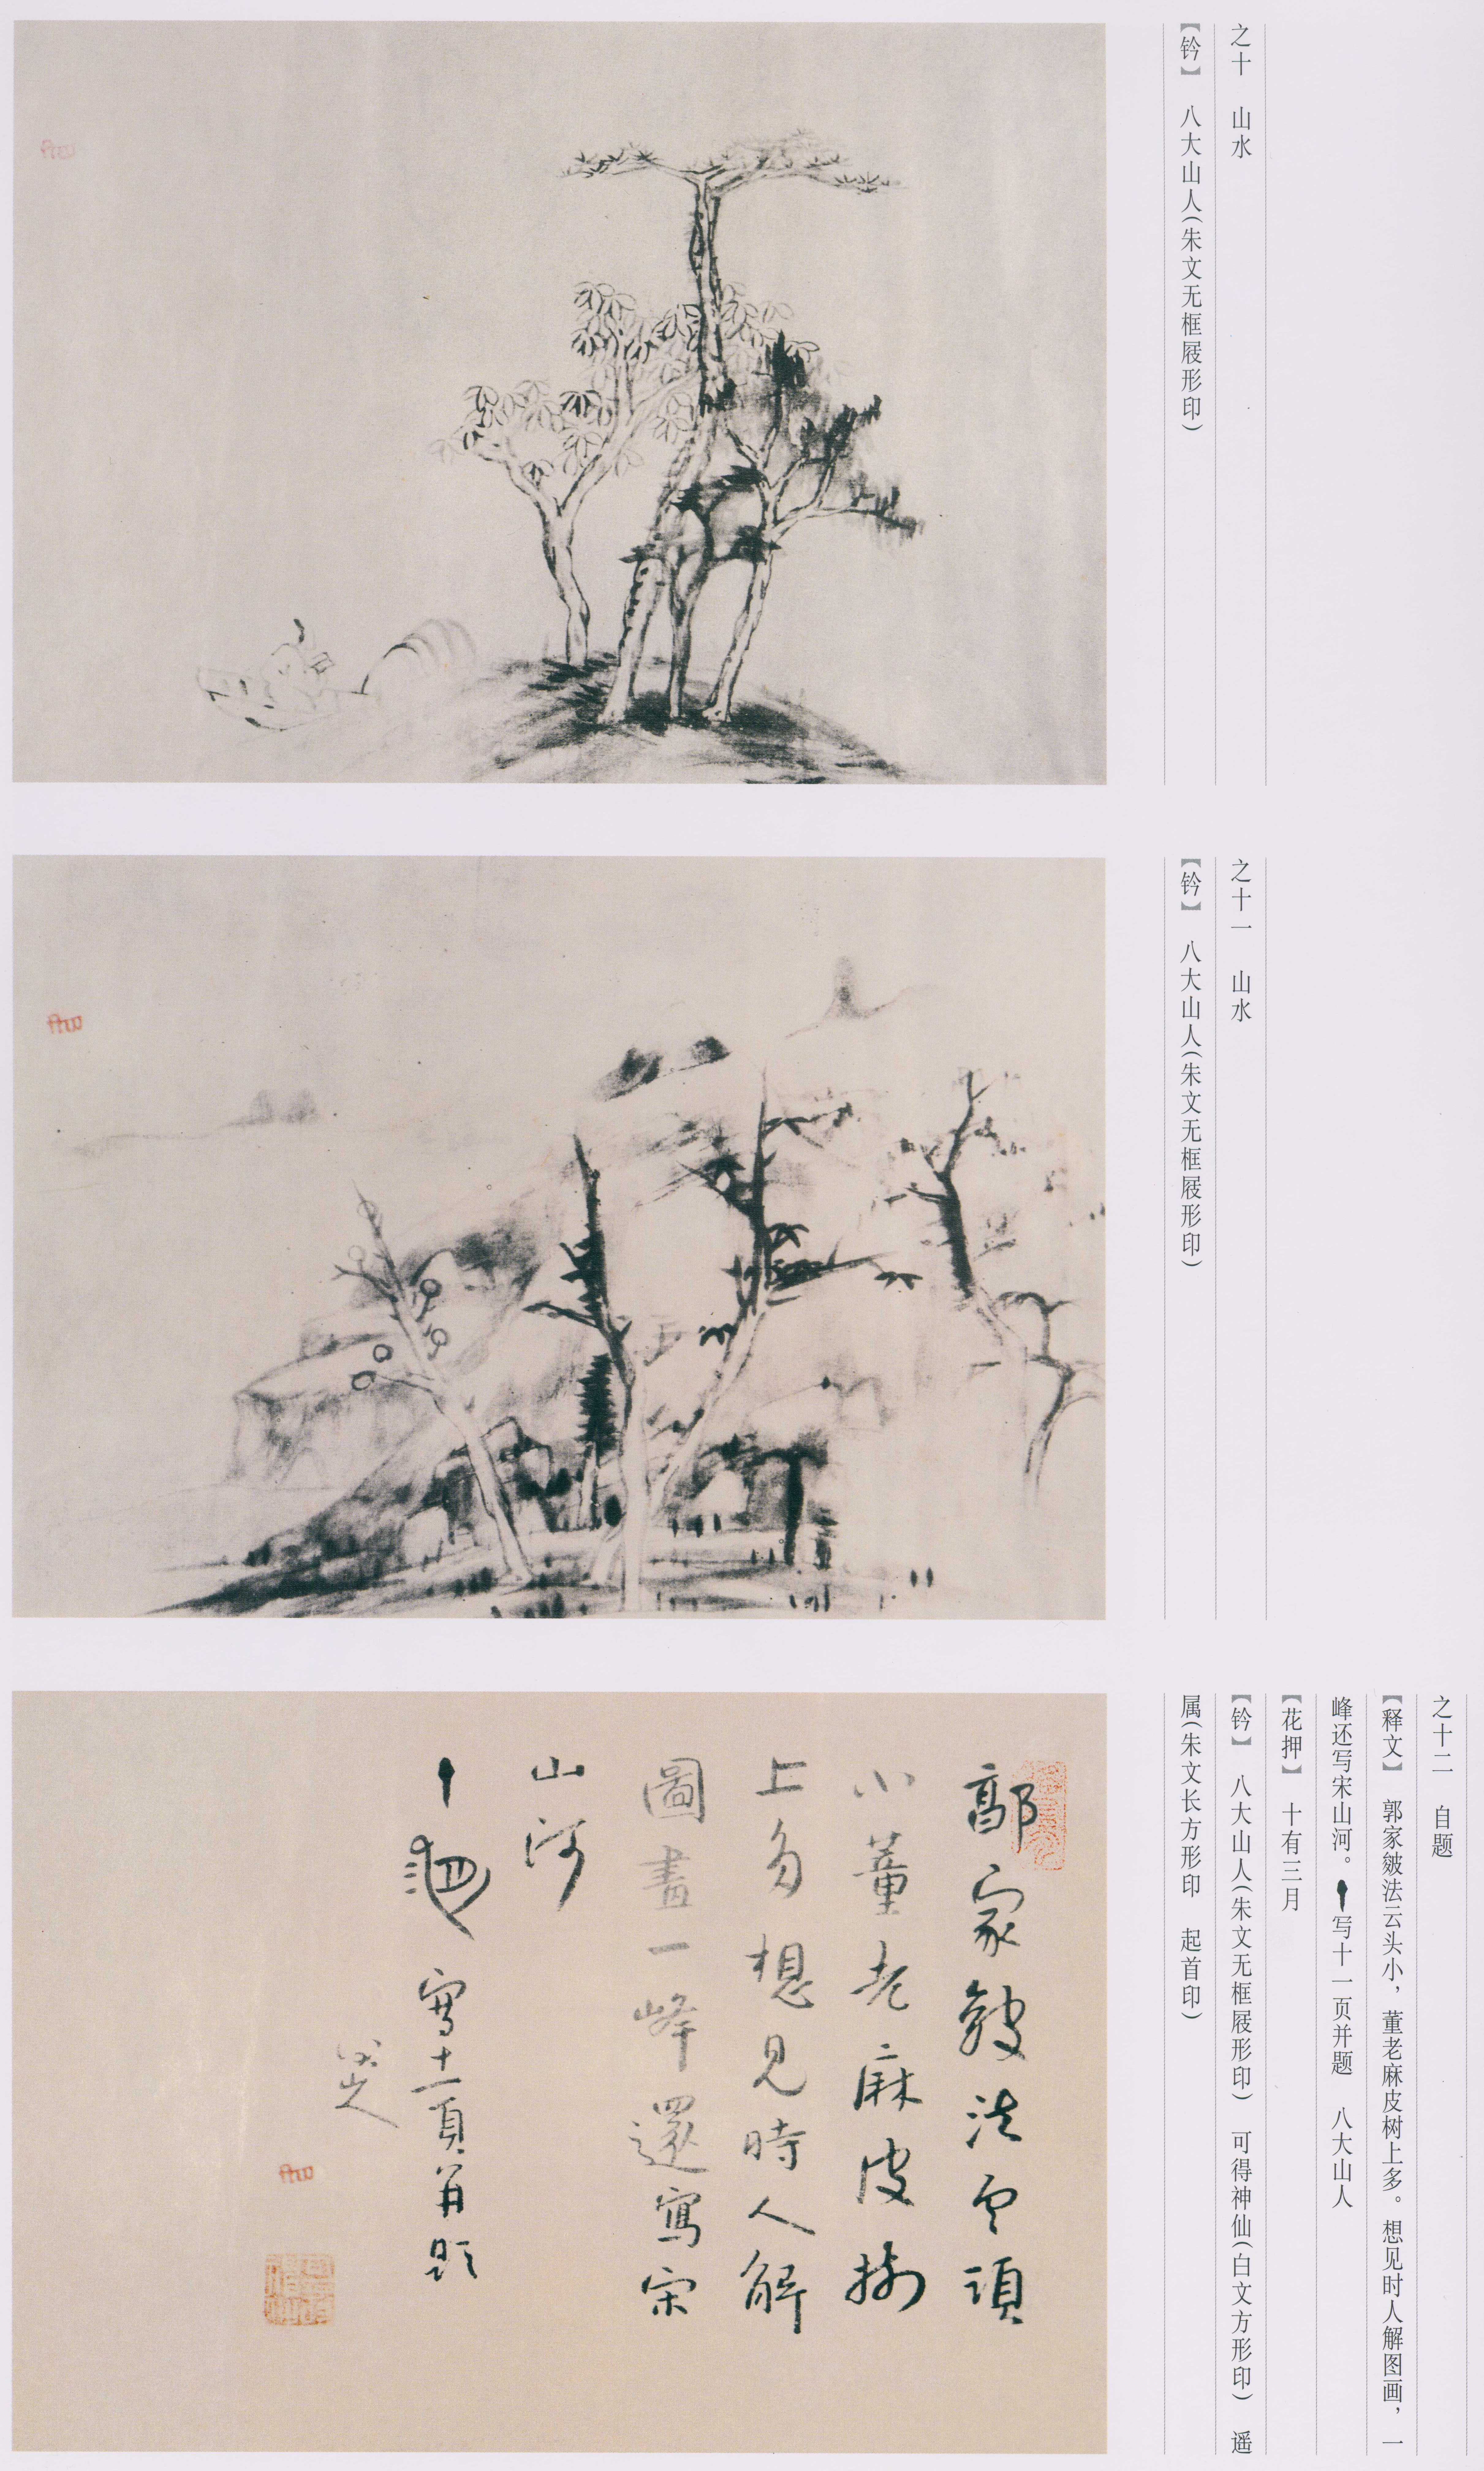 之十 山水
【钤】 八大山人(朱文无框屐形印)
之十一 山水
【钤】 八大山人(朱文无框屐形印)
之十二 自题
【释文】 郭家皴法云头小，董老麻皮树上多。想见时人解图画，一
峰还写宋山河。写十一页并题 八大山人
【花押】 十有三月
【钤】 八大山人(朱文无框屐形印) 可得神仙(白文方形印) 遥
属(朱文长方形印 起首印)
郭家皴法雲頭
小董老麻皮樹
上多想見時人解
圖畫一峰還寫宋
山河
寫十一頁并題
八大山人